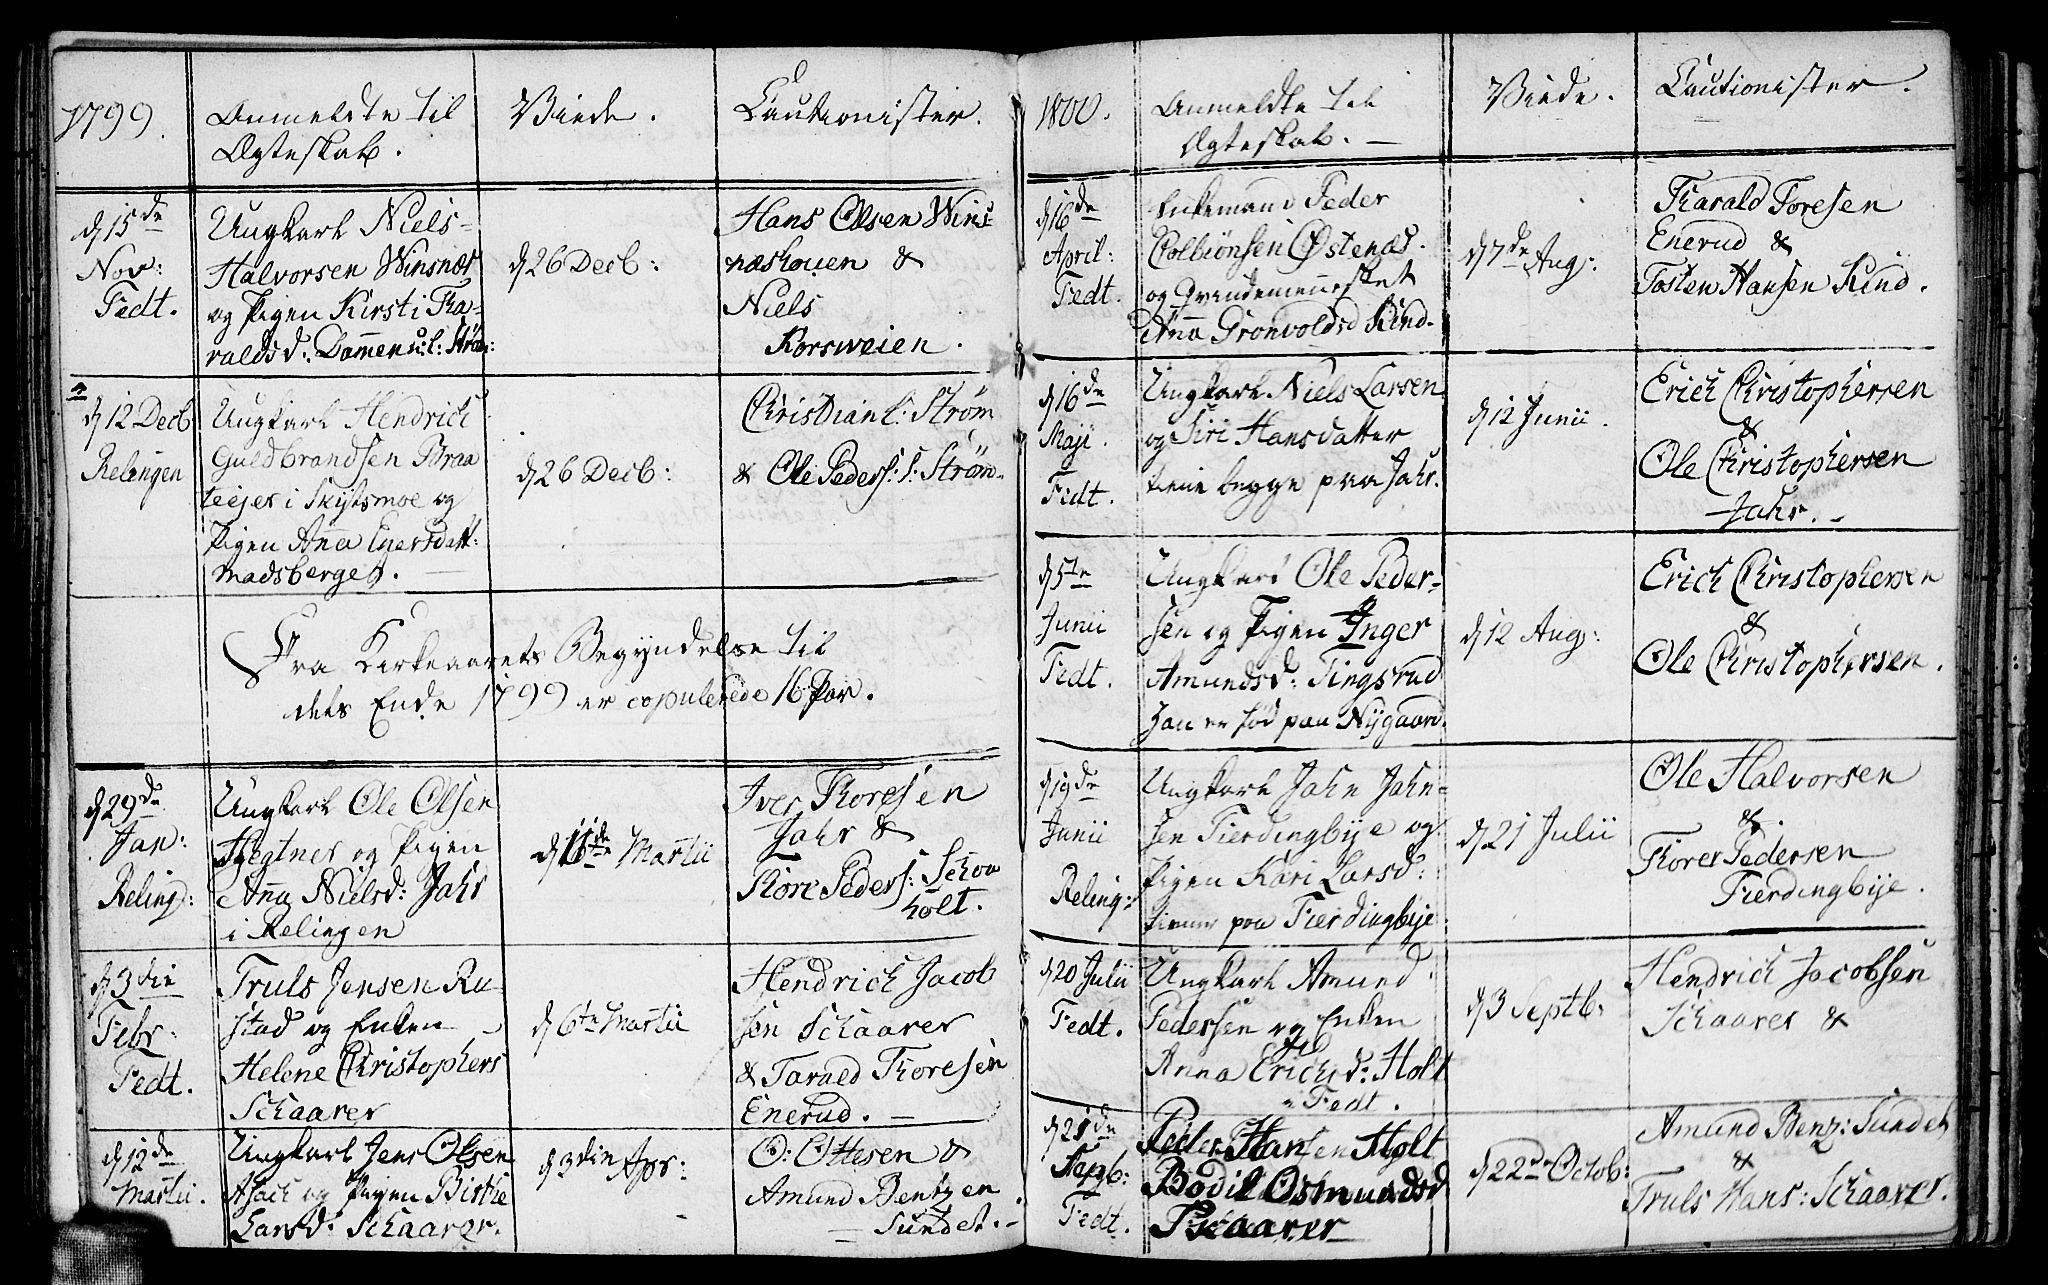 1799.
Anmeldte til
Ægteskab.
Viede.
Cautionister.
d 15de
Nov:
Fedt.
Ungkarl Niels
Halvorsen Winsnæs
og Pigen Kirsti Tha-
raldsd:
d 26 Decb:
Hans Olsen Wins-
næshouen &
Niels
Korsweien.
d 12 Decb
Relingen
Ungkarl Hendrich
Guldbrandsen Braa
teejer i Skytsmoe og
Pigen Aña Enersdatt:
Madsberget.
d 26 Decb:
Christian L: Strøm
& Ole Peders: S: Strøm.
Fra Kirkeaarets Begyndelse til
dets Ende 1799 er copulerede 16 Par.
d 29de
Jan:
Reling:
Ungkarl Ole Olsen
Hegtner og Pigen
Aña Nielsd: Jahr
i Relingen
Martii
Iver Thoresen
Jahr &
Thore Peders: Schou
holt.
d 3die
Febr:
Fedt.
Truls Jensen Ru-
stad og Enken
Helene Christophers
Schaarer
d 6te Martii
Hendrich Jacob
sen Schaarer
& Tarald Thoresen
Enerud.
d 12de
Martii.
Ungkarl Jens Olsen
Asach og Pigen Birthe
Larsd: Schaarer.
d 3die Apr:
O: Ottesen &
Amund Bentzen
Sundet.
1800.
Anmeldte til
Ægteskab.
Viede.
Cautionister.
d 16de
April:
Fedt.
Enkemand Peder
Colbiönsen Østenæs.
og Qvindemennesket
Aña Gronvoldsd Kind.
d 7de Aug:
Tharald Toresen
Enerud &
Tosten Hansen Kind.
d 16de
Maji.
Fedt.
Ungkarl Niels Larsen
og Siri Hansdatter
tiene begge paa Jahr.
d 12 Junii.
Erich Christophersen
&
Ole Christophersen
Jahr.
d 5te
Junii
Fedt.
Ungkarl Ole Peder-
sen og Pigen Inger
Amundsd: Tingsrud
han er fød paa Nÿgaard.
d 12 Aug:
Erich Christophersen
&
Ole Christophersen.
d 19de
Junii
Reling:
Ungkarl Jahn Jahn-
sen Fierdingbye og
Pigen Kari Larsd:
tiener paa Fierdingbye.
d 21 Julii
Ole Halvorsen
&
Thorer Pedersen
Fierdingbye.
d 20 Julii
Fedt.
Ungkarl Amund
Pedersen og Enken
Anna Erichsd: Holt
i Fedt.
d 3 Septb:
Hendrich Jacobsen
Schaarer &
d 21de
Fedt.
Peder Hansen Holt
Bodil Osmundsd
Schaarer
d 22de Octob:
Amund Benz: Sundet
&
Truls Hans: Schaarer.